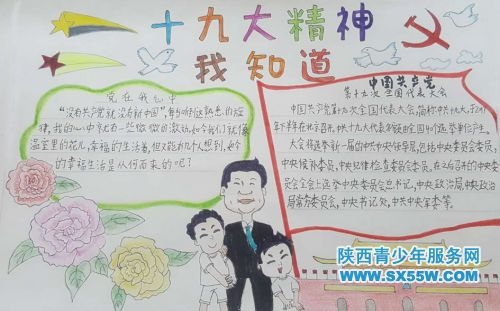 十九大精神
我知道
党在我心中
"没有共产党就没有新中国",每当听到这熟悉的旋
律,我的心中就有一些微微的激动,如今我们就像
温室里的花儿,幸福的生活着,但又能有几个人想到,如今
的幸福生活是从何而来的呢?
中国共产党
第十九次全国代表大会
中国共产党第十九次全国代表大会,简称中共十九大,于2017
年下半年在北京召开,中共十九大代表名额由全国40个选举单位产生。
大会将选举新一届的中共中央领导层,包括中央委员会委员、
中央候补委员、中央纪律检查委员会委员。在之后召开的中央委
员会全会上选举中央委员会总书记、中央政治局、中央政治
局常务委员会、中央书记处、中共中央军委等。
陕西青少年服务网
www.sx55w.com